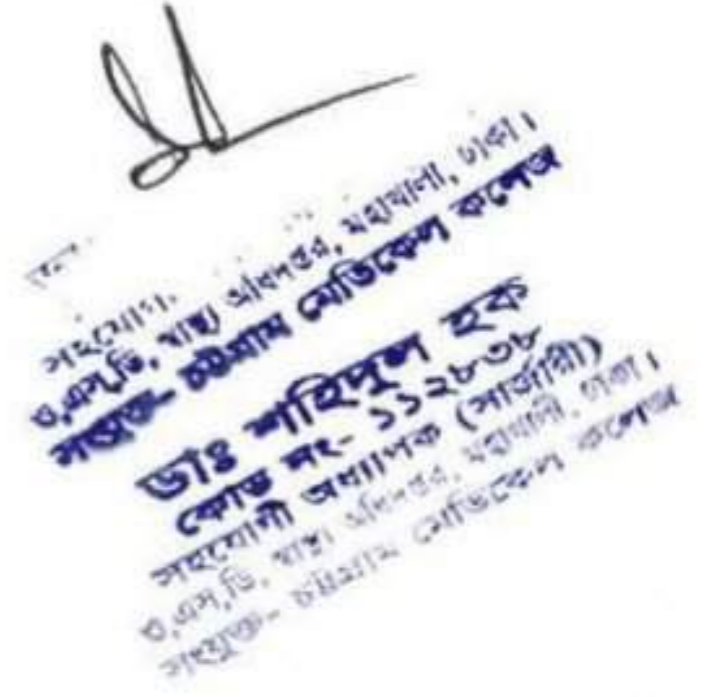 সহযোগ
ও,এস,ডি, স্বাস্থ্য অধিদপ্তর, মহাখালী, ঢাকা।
সংযুক্ত- চট্টগ্রাম মেডিকেল কলেজ
ডাঃ শহিদুল হক
কোড নং- ১১২৮৩৮
সহযোগী অধ্যাপক (সার্জারী)
ও,এস,ডি, স্বাস্থ্য অধিদপ্তর, মহাখালী, ঢাকা।
সংযুক্ত- চট্টগ্রাম মেডিকেল কলেজ